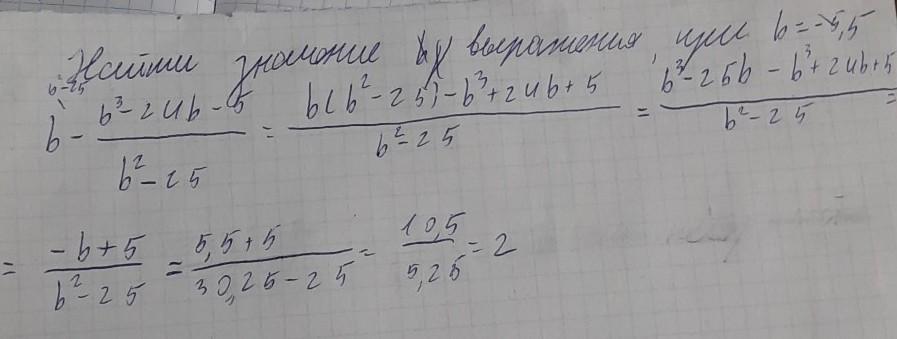 Найти значение выражения, при b=-5,5
b²-25
b - b³-24b-5 / b²-25 = b(b²-25)-b³+24b+5 / b²-25 = b³-25b-b³+24b+5 / b²-25 =
= -b+5 / b²-25 = 5,5+5 / 30,25-25 = 10,5 / 5,25 = 2